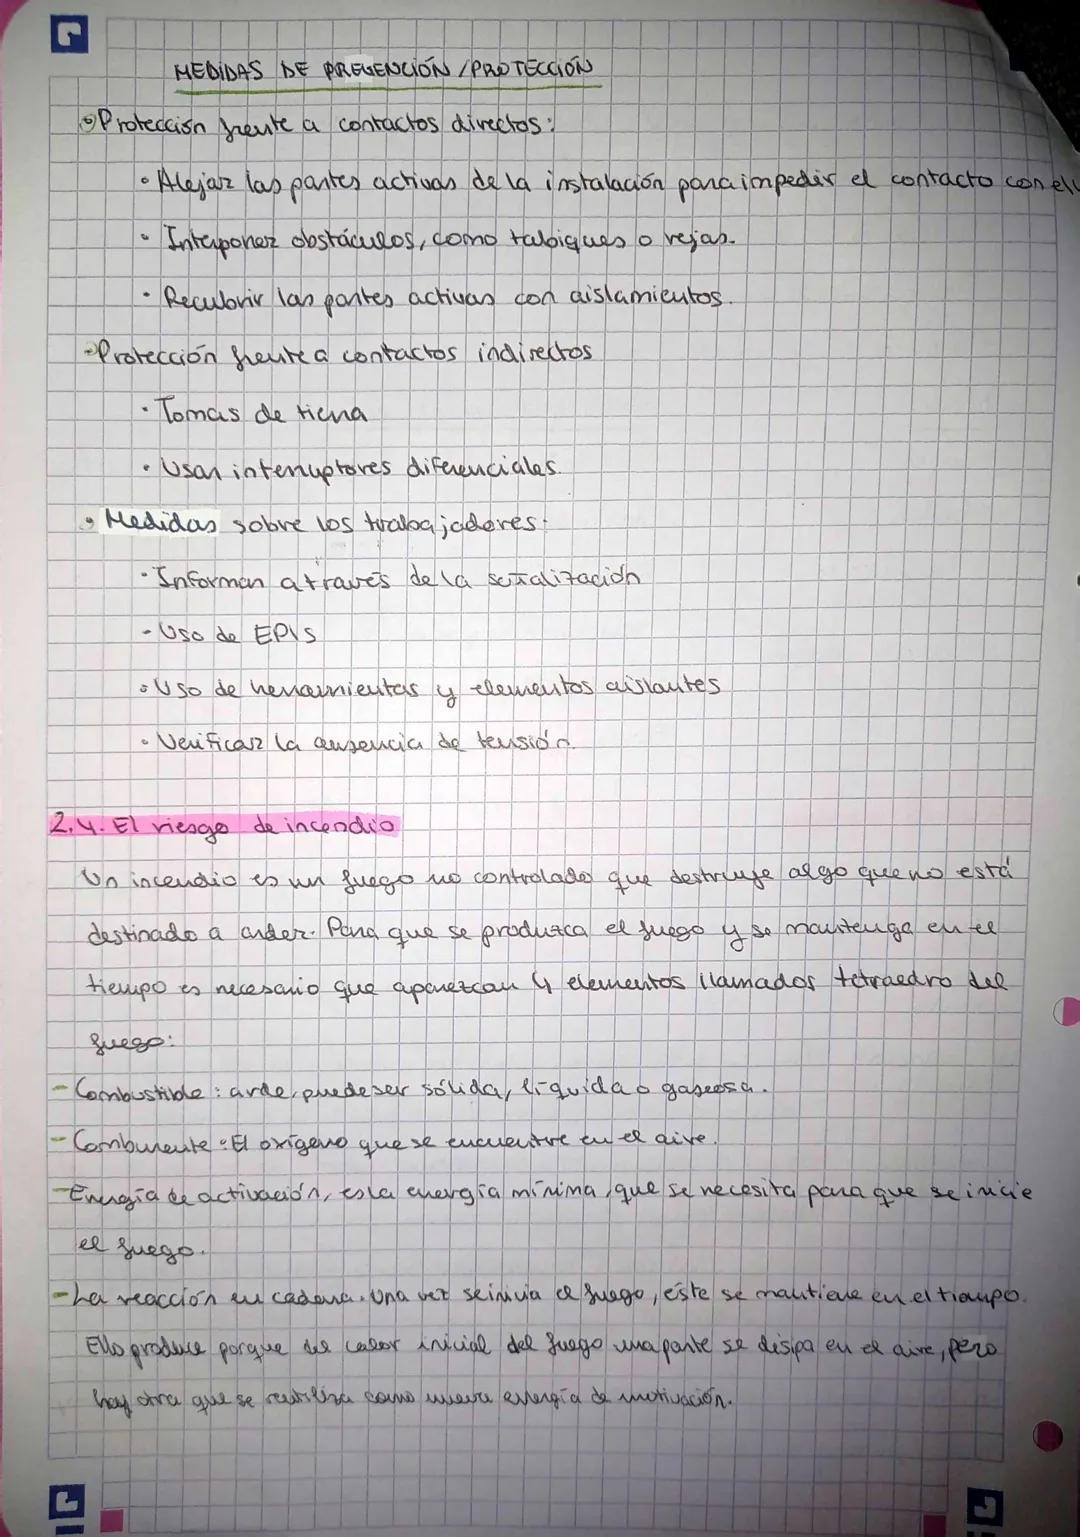 MEDIDAS DE PREVENCIÓN / PROTECCIÓN
Protección frente a contactos directos:
• Alejar las partes activas de la instalación para impedir el contacto con ell
• Interponer obstáculos, como tabiques o rejas.
• Recubrir las partes activas con aislamientos.
-Protección frente a contactos indirectos
• Tomas de tierra
• Usar interruptores diferenciales.
• Medidas sobre los trabajadores:
• Informan a través de la señalización
- Uso de EPIS
• Uso de herramientas y elementos aislantes
• Verificar la ausencia de tensión.
2.4. El riesgo de incendio
Un incendio es un fuego no controlado que destruye algo que no está
destinado a arder. Para que se produzca el fuego y se mantenga en el
tiempo es necesario que aparezcan 4 elementos llamados tetraedro del
fuego:
- Combustible: arde, puede ser sólida, líquida o gaseosa.
- Comburente: El oxígeno que se encuentre en el aire.
- Energía de activación, es la energía mínima, que se necesita para que se inicie
el fuego.
- La reacción en cadena. Una vez se inicia el fuego, éste se mantiene en el tiempo.
Ello produce porque del calor inicial del fuego una parte se disipa en el aire, pero
hay otra que se reutiliza como nueva energía de motivación.